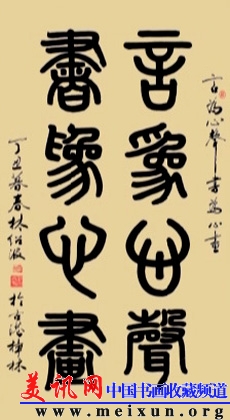 言為心聲書為心画
言為心聲
書為心畫
丁丑暮春林
美讯网
中国书画收藏频道
www.meixun.org